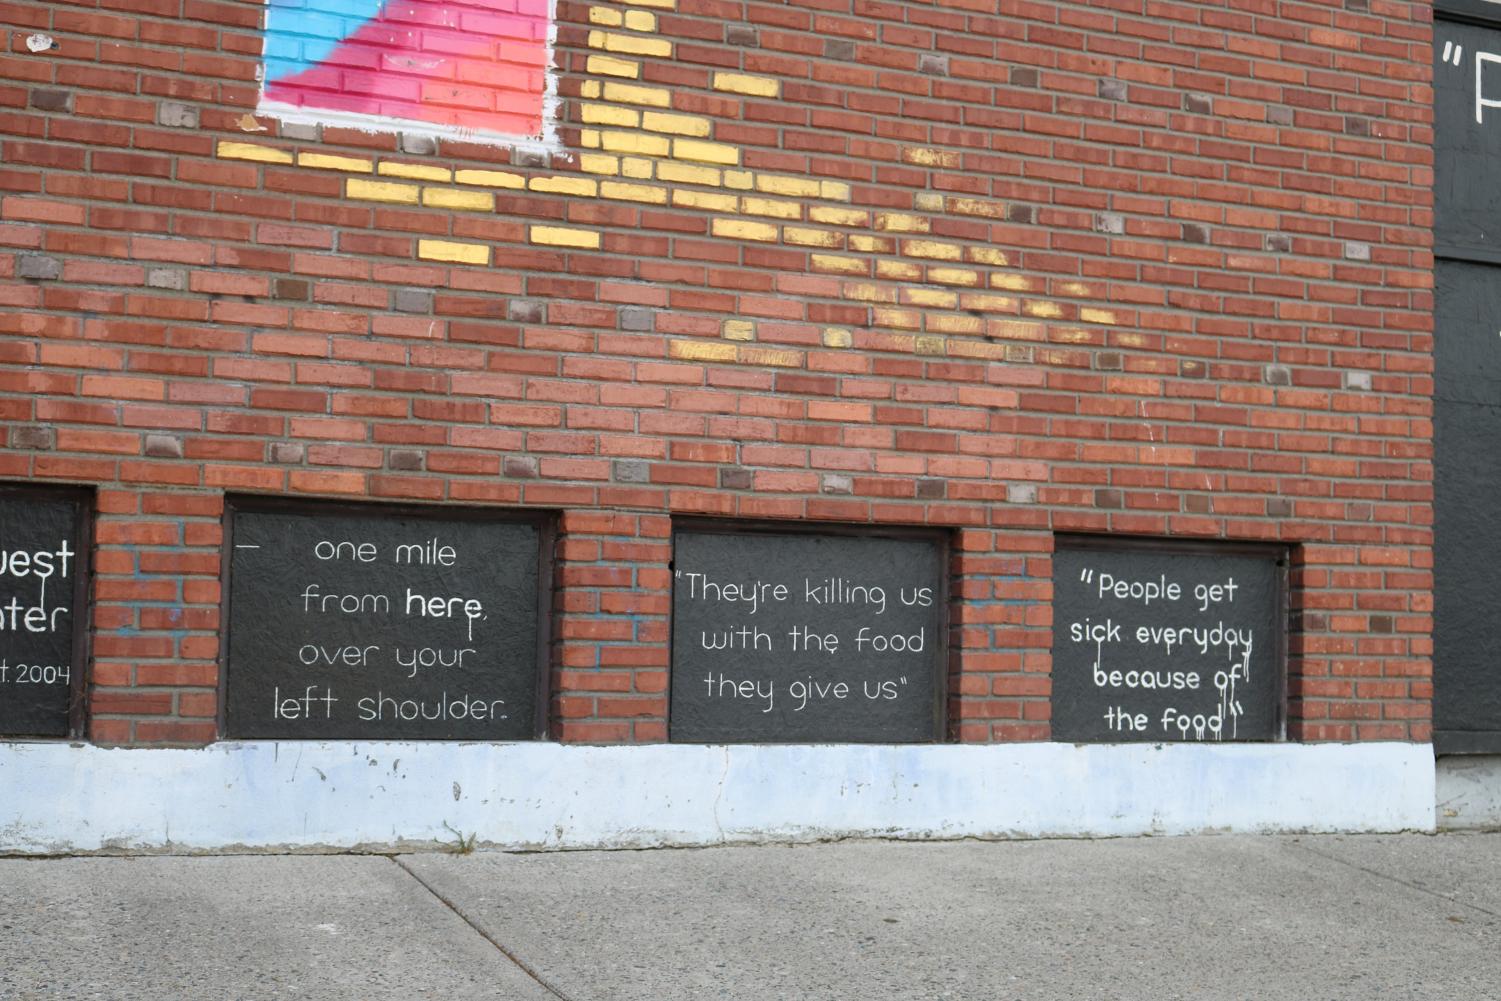 2004
— one mile
from here,
over your
left shoulder.
"They're killing us
with the food
they give us"
"People get
sick everyday
because of
the food"